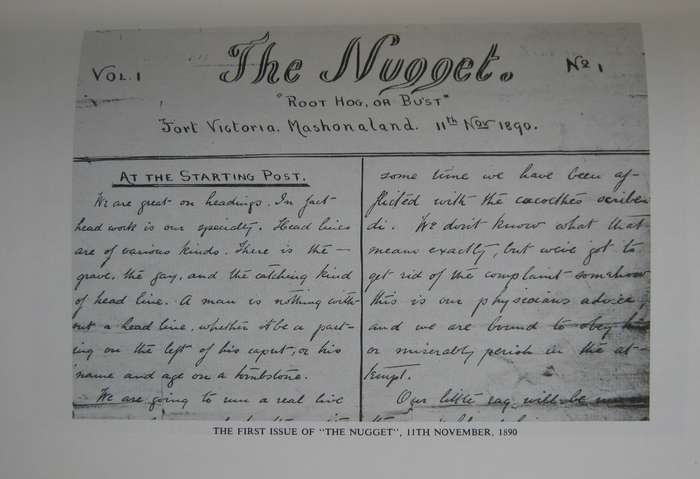 VOL. 1 The Nugget. No 1
"ROOT HOG, OR BUST"
Fort Victoria. Mashonaland. 11th Nov 1890.
AT THE STARTING POST.
We are great on headings. In fact
head work is our specialty. Head lines
are of various kinds. There is the —
grave, the gay, and the catching kind
of head line. A man is nothing with-
out a head line, whether it be a part-
ing on the left of his caput, or his
name and age on a tombstone.
We are going to run a real live
some time we have been af-
flicted with the cacoethes scriben
di. We don't know what that
means exactly, but we've got to
get rid of the complaint somehow
this is our physicians advice,
and we are bound to obey him
or miserably perish in the at-
tempt.
Our little rag will be
THE FIRST ISSUE OF "THE NUGGET", 11TH NOVEMBER, 1890